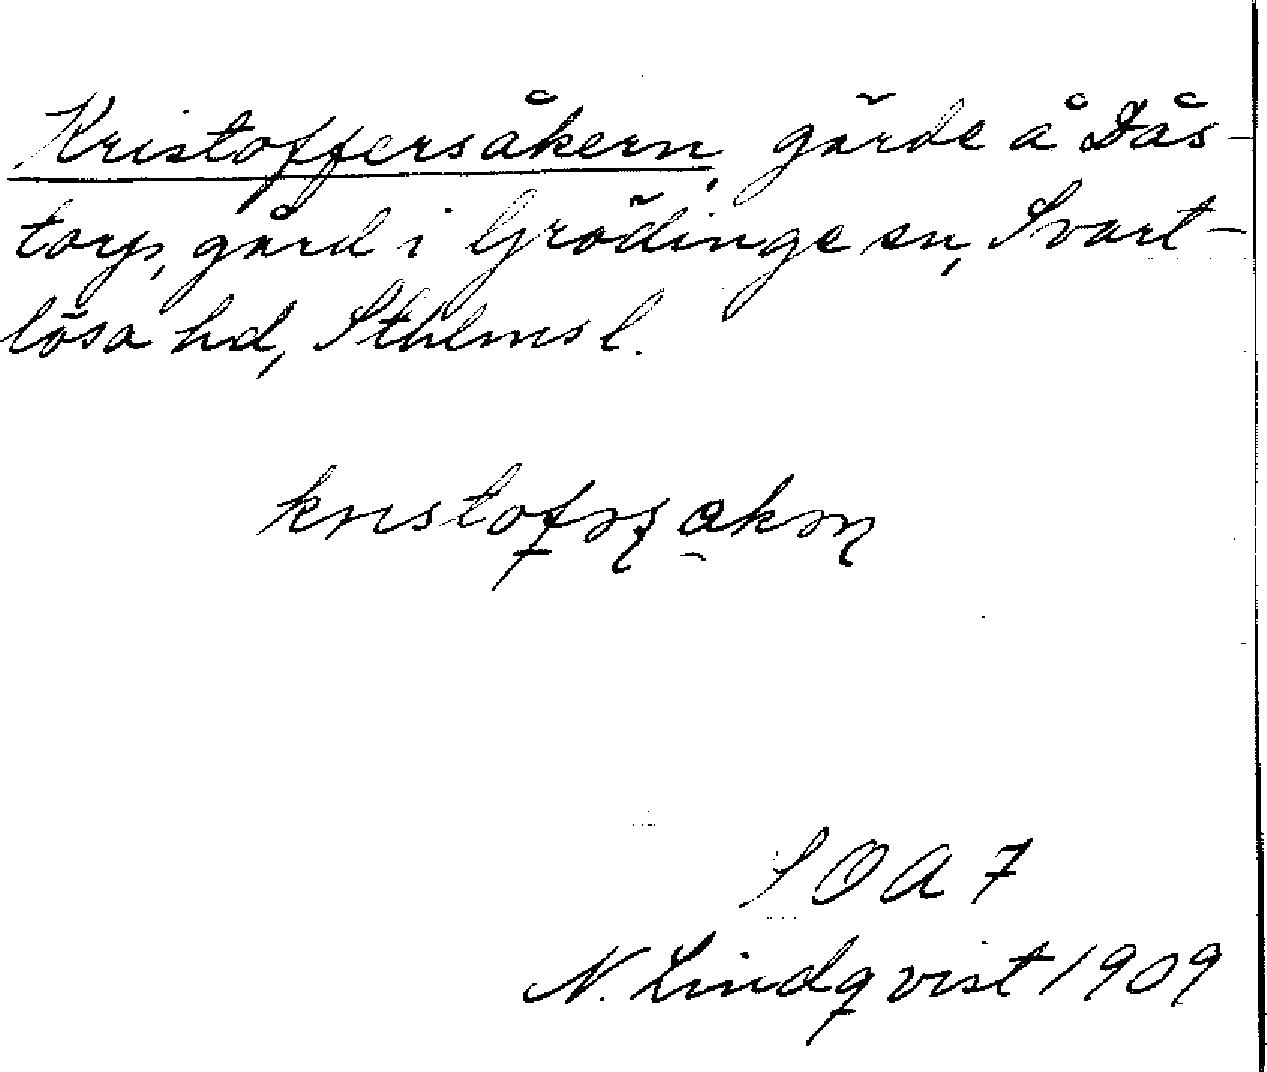 Kristoffersåkern, gärde å Dås-
torp, gård i Grödinge sn, Svart-
lösa hd, Sthlms l.
SOA 7
N. Lindqvist 1909